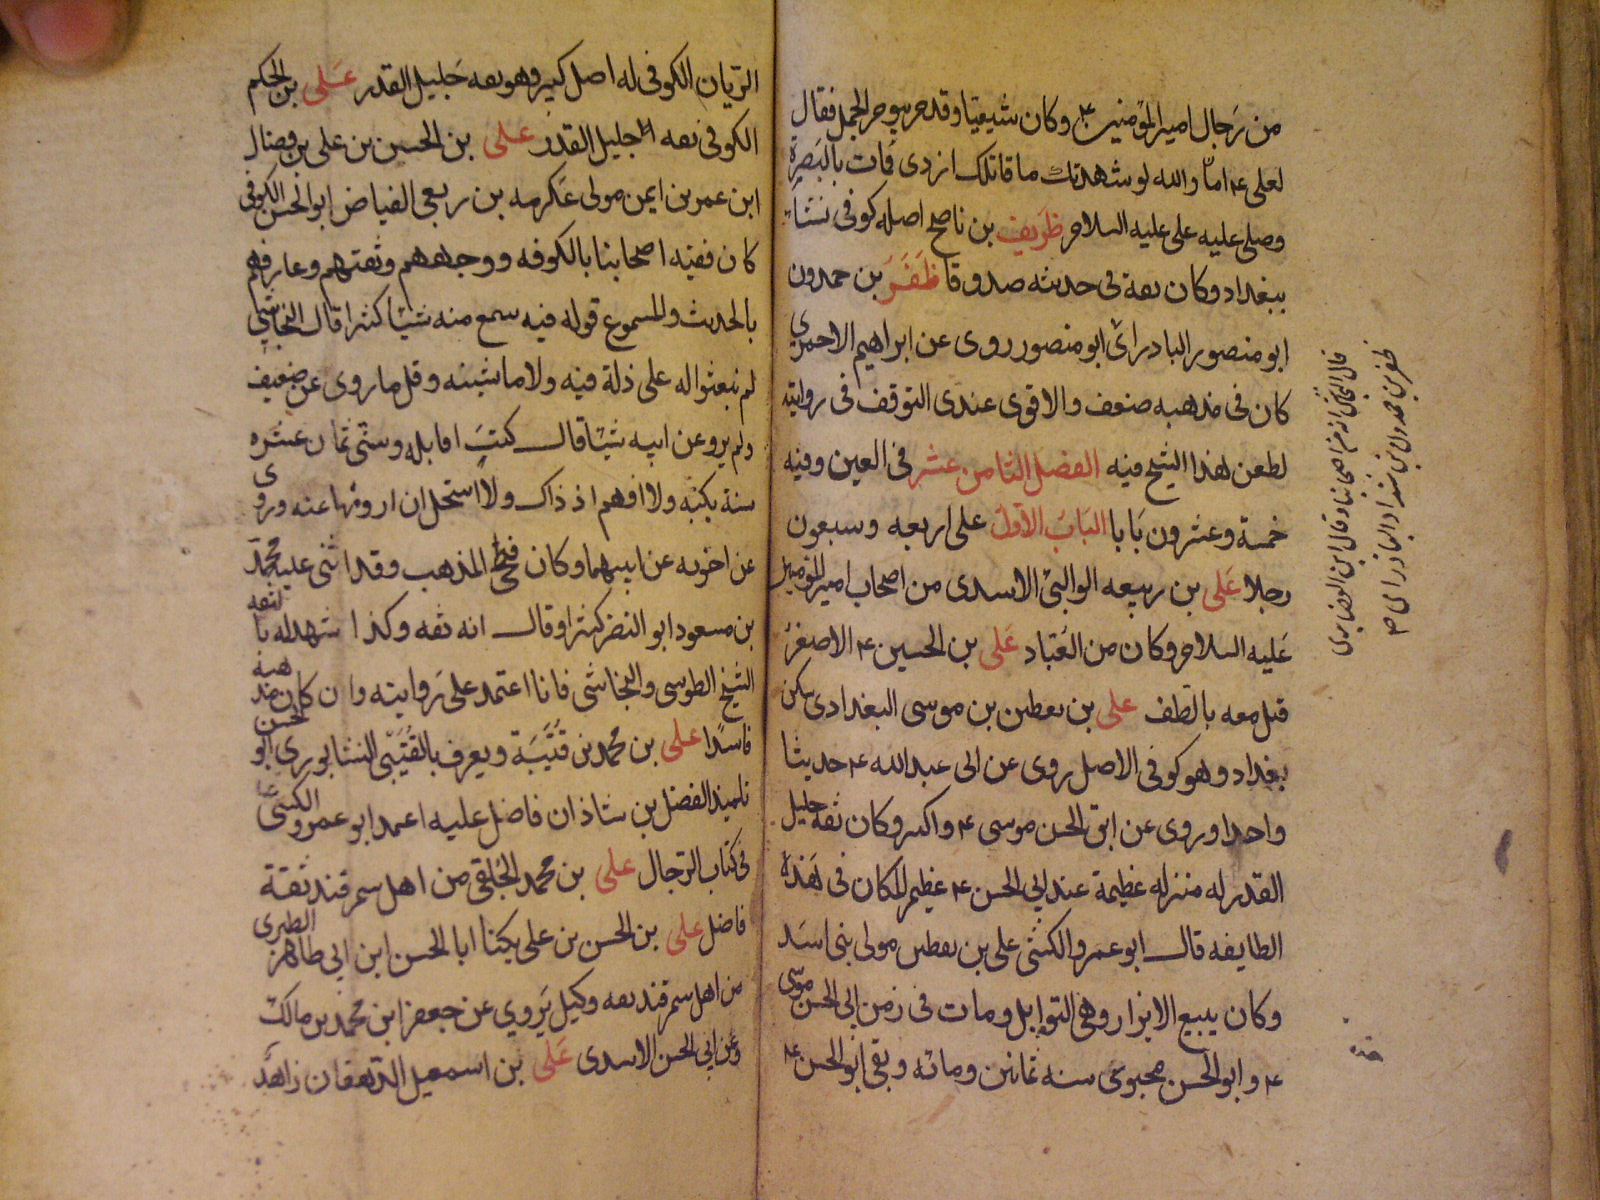 من رجال امير المؤمنين ع وكان شيعيا وقدم يوم الجمل فقال
لعلى ع اما والله لو شهدتك ما قاتلك ازدى فمات بالبصرة
وصلى عليه على عليه السلام ظريف بن ناصح اصله كوفى نشأ
ببغداد وكان ثقة فى حديثه صدوقا ظفر بن حمدون
ابو منصور البادرائى ابو منصور روى عن ابراهيم الاحمرى
كان فى مذهبه ضعف والاقوى عندى التوقف فى روايته
لطعن هذا الشيخ فيه الفصل الثامن عشر فى العين وفيه
خمسة وعشرون بابا الباب الاول على اربعه وسبعون
رجلا على بن ربيعه الوالبى الاسدى من اصحاب امير المؤمنين
عليه السلام وكان من العباد على بن الحسين ع الاصغر
قتل معه بالطف على بن يقطين بن موسى البغدادى سكن
بغداد وهو كوفى الاصل روى عن ابى عبد الله ع حديثا
واحدا وروى عن ابى الحسن موسى ع واكثر وكان ثقه جليل
القدر له منزله عظيمة عند ابى الحسن ع عظيم المكان فى هذه
الطايفه قال ابو عمرو الكشى على بن يقطين مولى بنى اسد
وكان يبيع الابزار وهى التوابل ومات فى زمن ابى الحسن موسى
ع وابو الحسن محبوس سنه ثمانين ومائه وبقى ابو الحسن ع
ظفر بن حمدون بن شداد البادرائى
الريان الكوفى له اصل كبير وهو ثقه جليل القدر على بن الحكم
الكوفى ثقه جليل القدر على بن الحسن بن على بن فضال
ابن عمر بن ايمن مولى عكرمه بن ربعى الفياض ابو الحسن الكوفى
كان فقيه اصحابنا بالكوفه ووجههم وثقتهم وعارفهم
بالحديث والمسموع قوله فيه سمع منه شيئا كثيرا قال النجاشى
لم نعثر له على ذلة فيه ولا ما يشينه وقل ما روى عن ضعيف
ولم يرو عن ابيه شيئا قال كنت اقابله وسنى ثمان عشره
سنة بكتبه ولا افهم اذ ذاك ولا استحل ان ارويها عنه وروى
عن اخويه عن ابيهما وكان فطحى المذهب وقد اثنى عليه محمد
بن مسعود ابو النضر كثيرا وقال انه ثقه وكذا شهد له بالثقه
الشيخ الطوسى والنجاشى فانا اعتمد على روايته وان كان مذهبه
فاسدا على بن محمد بن قتيبة ويعرف بالقتيبى النيشابورى ابو الحسن
تلميذ الفضل بن شاذان فاضل عليه اعتمد ابو عمرو الكشى
فى كتاب الرجال على بن محمد الخلقى من اهل سمرقند ثقة
فاضل على بن الحسن بن على يكنا ابا الحسن ابن ابى طاهر الطبرى
من اهل سمرقند ثقه وكيل يروي عن جعفر ابن محمد بن مالك
وعن ابى الحسن الاسدى على بن اسمعيل الدهقان زاهد